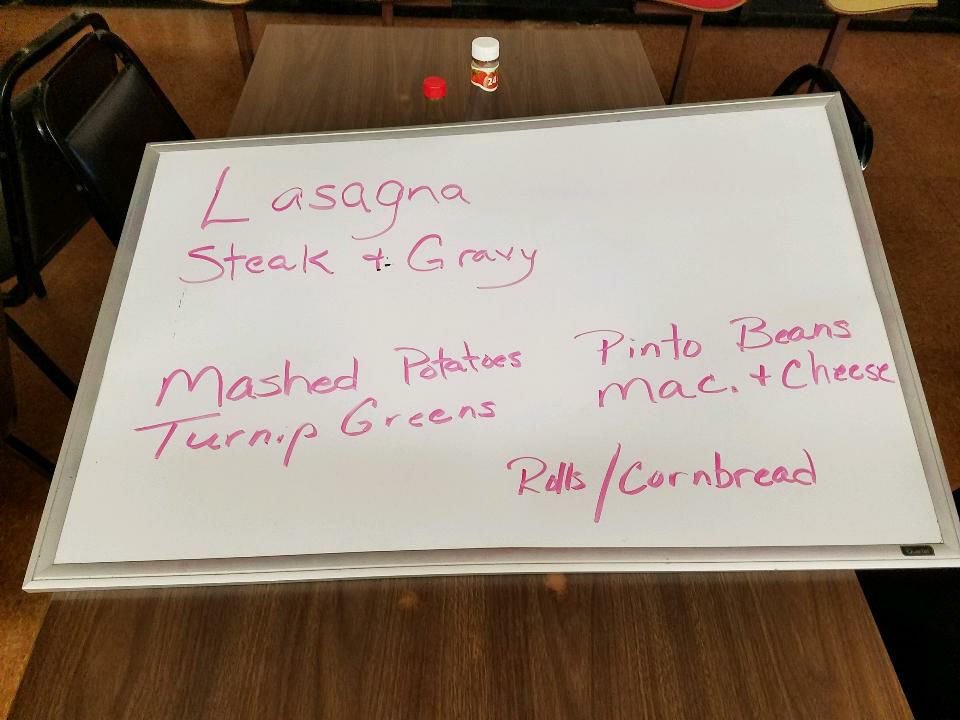 Lasagna
Steak + Gravy
Mashed Potatoes
Turnip Greens
Pinto Beans
Mac. + Cheese
Rolls/Cornbread
Quartet
24